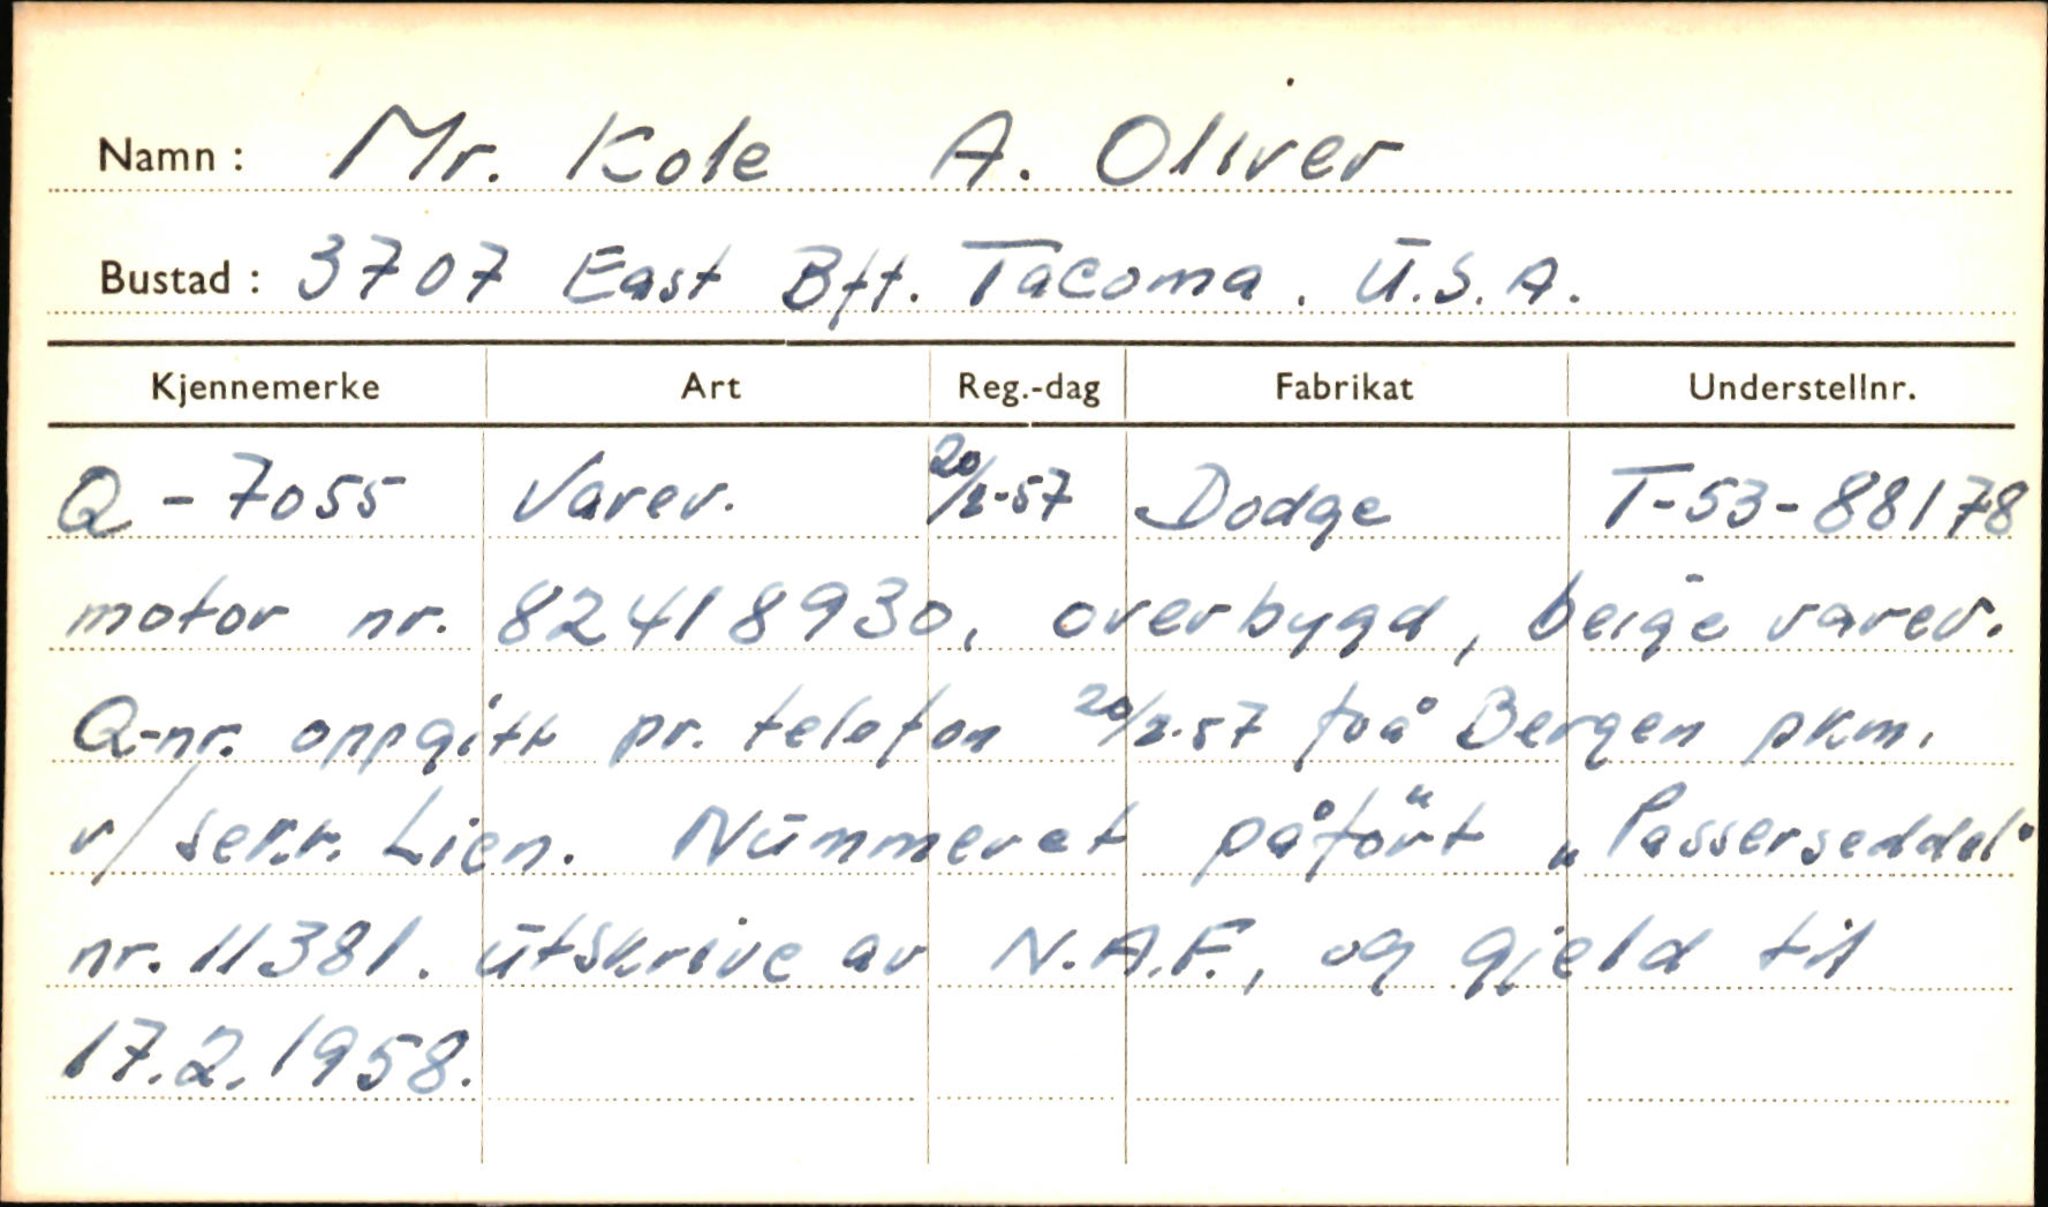 Namn: Mr. Kole A. Oliver
Bustad: 3707 East Bft. Tacoma. U.S.A.
Kjennemerke Art Reg.-dag Fabrikat Understellnr.
Q-7055 Varev. 20/2-57 Dodge T-53-88178
motor nr. 82418930, overbygd, beige varev.
Q-nr. oppgitt pr. telefon 20/2-57 frå Bergen pkm.
v/ serr. Lien. Nummeret påført „Passerseddel"
nr. 11381. utskrive av N.A.F., og gjeld til
17.2.1958.